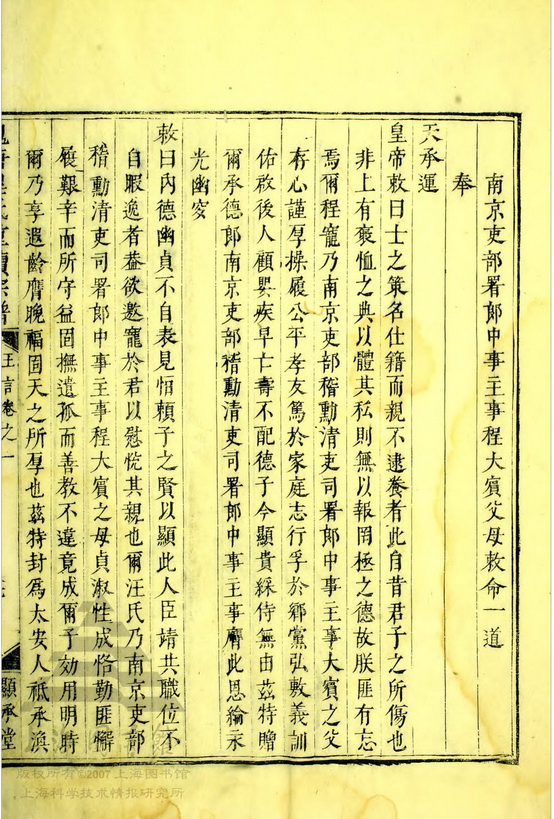 南京吏部署郎中事主事程大賓父母敕命一道
奉
天承運
皇帝敕曰士之策名仕籍而親不逮養者此自昔君子之所傷也
非上有褒恤之典以體其私則無以報罔極之德故朕匪有忘
焉爾程寵乃南京吏部稽勳清吏司署郎中事主事大賓之父
存心謹厚操履公平孝友篤於家庭志行孚於鄉黨弘敷義訓
佑啟後人顧嬰疾早亡壽不配德子今顯貴綵侍無由茲特贈
爾承德郎南京吏部稽勳清吏司署郎中事主事膺此恩綸永
光幽穸
敕曰內德幽貞不自表見恒賴子之賢以顯此人臣靖共職位不
自暇逸者葢欲邀寵於君以慰悅其親也爾汪氏乃南京吏部
稽勳清吏司署郎中事主事程大賓之母貞淑性成恪勤匪懈
履艱辛而所守益固撫遺孤而善教不違竟成爾子効用明時
爾乃享遐齡膺晚福固天之所厚也茲特封為太安人祇承渙
王言卷之一
顯承堂
版权所有©2007上海图书馆
上海科学技术情报研究所